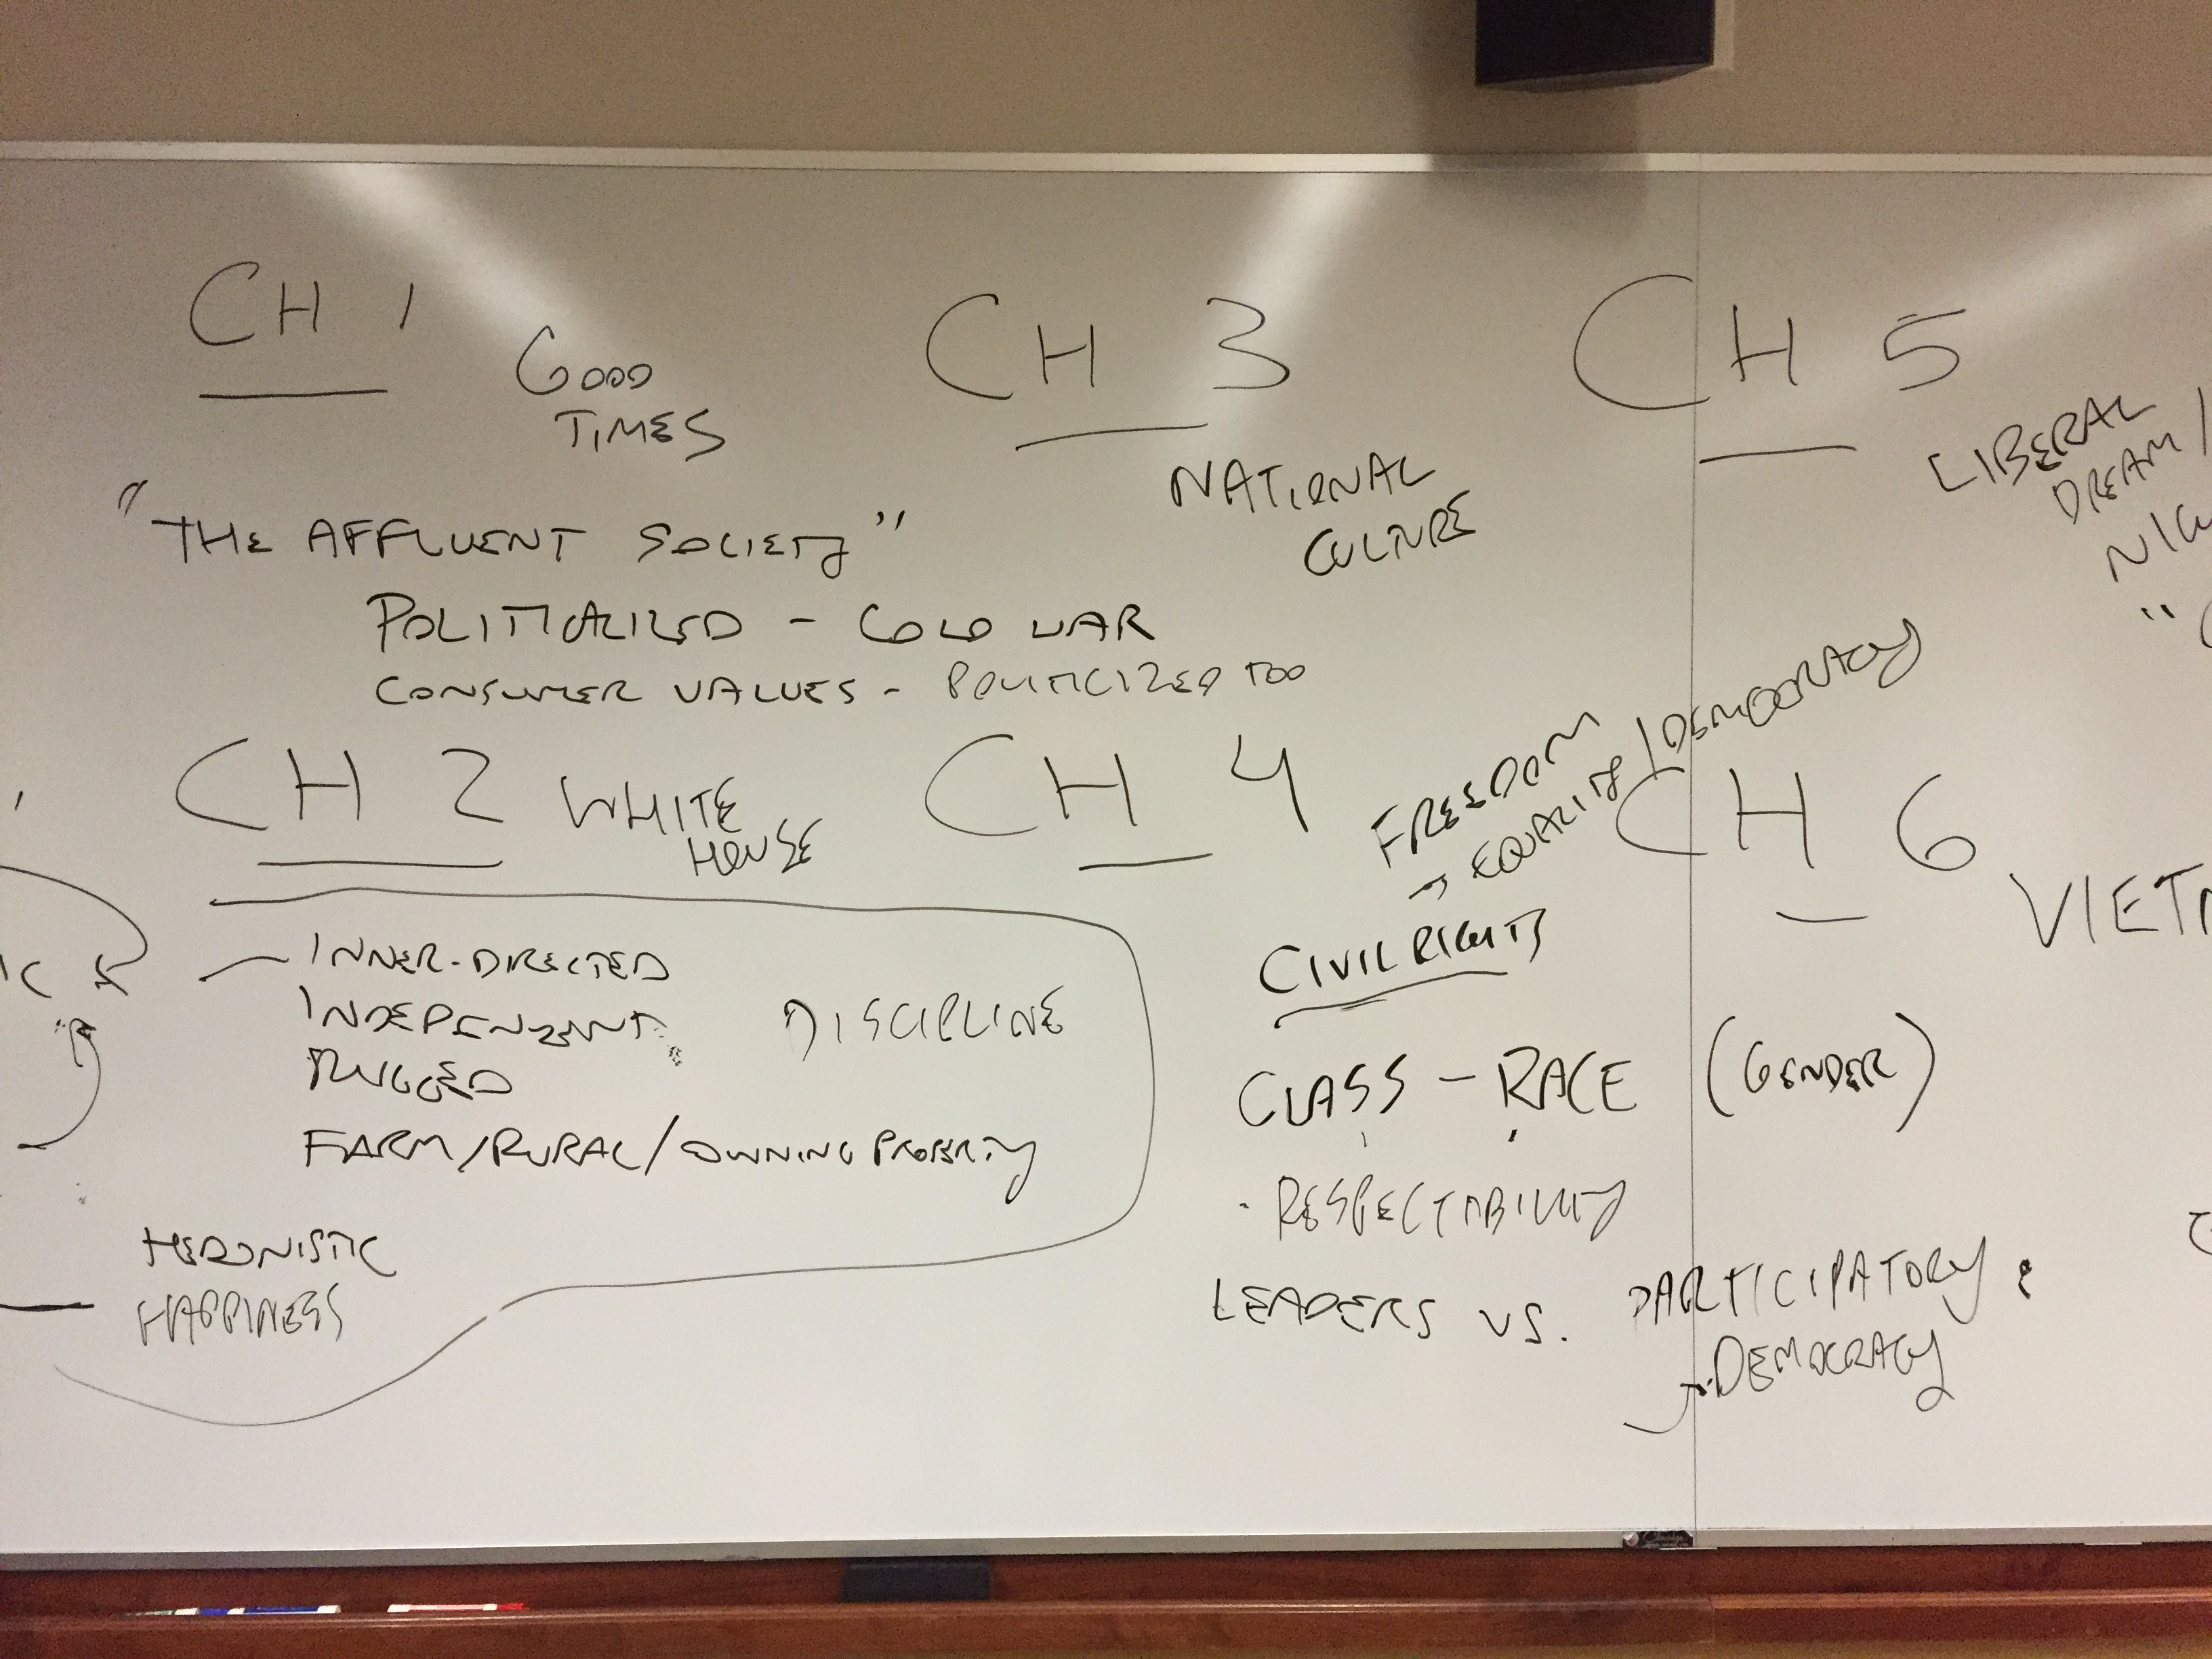 CH 1
GOOD
TIMES
"THE AFFLUENT SOCIETY"
POLITICALIZED - COLD WAR
CONSUMER VALUES - POLITICIZED TOO
CH 2 WHITE
HOUSE
INNER-DIRECTED
INDEPENDENT DISCIPLINE
RUGGED
FARM/RURAL/OWNING PROPERTY
HEDONISTIC
HAPPINESS
CH 3
NATIONAL
CULTURE
CH 4
FREEDOM
→ EQUALITY/DEMOCRACY
CIVIL RIGHTS
CLASS - RACE (GENDER)
· RESPECTABILITY
LEADERS VS. PARTICIPATORY
DEMOCRACY
CH 5
LIBERAL
DREAM/
CH 6